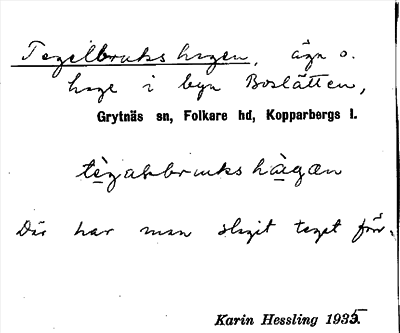 Tegelbrukshagen, äga o.
hage i byn Boslätten,
Grytnäs sn, Folkare hd, Kopparbergs l.
tègabbrukshàgæn
Där har man slagit teget förr.
Karin Hessling 1935.